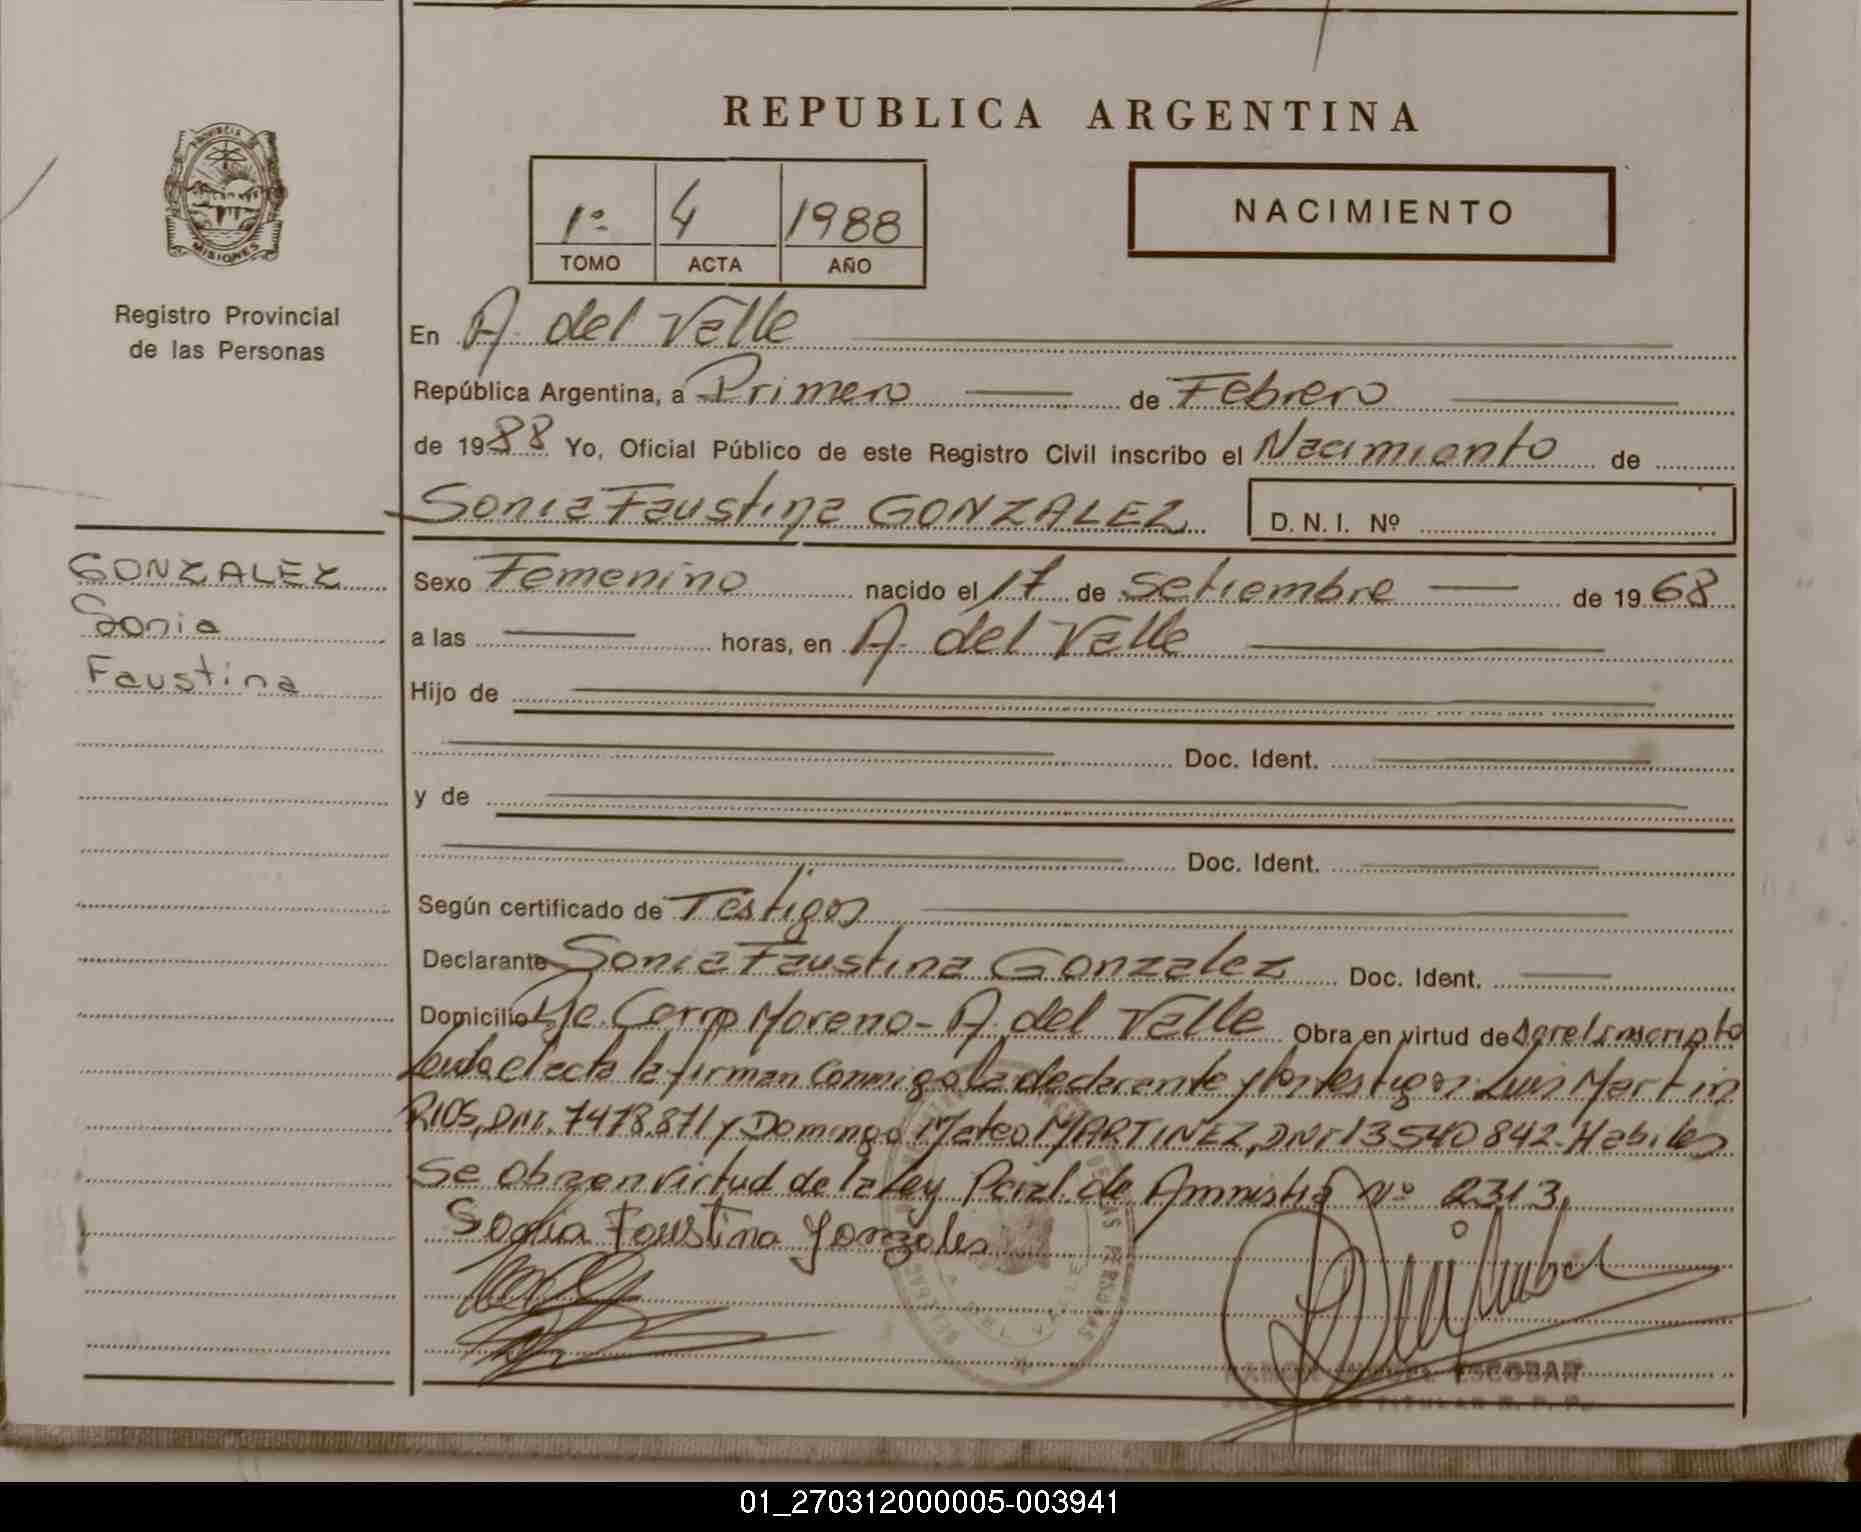 REPUBLICA ARGENTINA
PROVINCIA DE
MISIONES
Registro Provincial
de las Personas
1º 4 1988
TOMO ACTA AÑO
NACIMIENTO
En A. del Valle
República Argentina, a Primero de Febrero
de 1988 Yo, Oficial Público de este Registro Civil inscribo el Nacimiento de
Sonia Faustina GONZALEZ D. N. I. Nº
GONZALEZ
Sonia
Faustina
Sexo Femenino nacido el 17 de Setiembre de 1968
a las horas, en A. del Valle
Hijo de
Doc. Ident.
y de
Doc. Ident.
Según certificado de Testigos
Declarante Sonia Faustina Gonzalez Doc. Ident.
Domicilio Cerro Moreno - A. del Valle Obra en virtud de
el acta la firman conmigo la declarante y los testigos: Luis Martin
RIOS, DNI. 7478.871 y Domingo Mateo MARTINEZ, DNI 13540842. Habiles
Se obra en virtud de la Ley Pcial. de Amnistia Nº 2313,
Sonia Faustina Gonzales
ESCOBAR
TITULAR R. P. P.
01_270312000005-003941